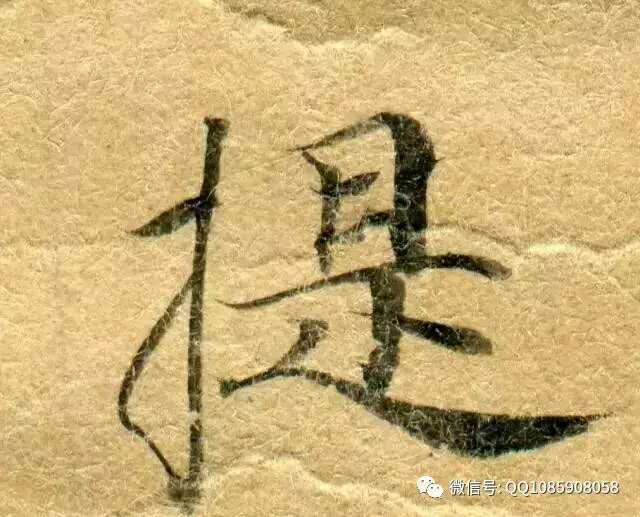 提
微信号: QQ1085908058